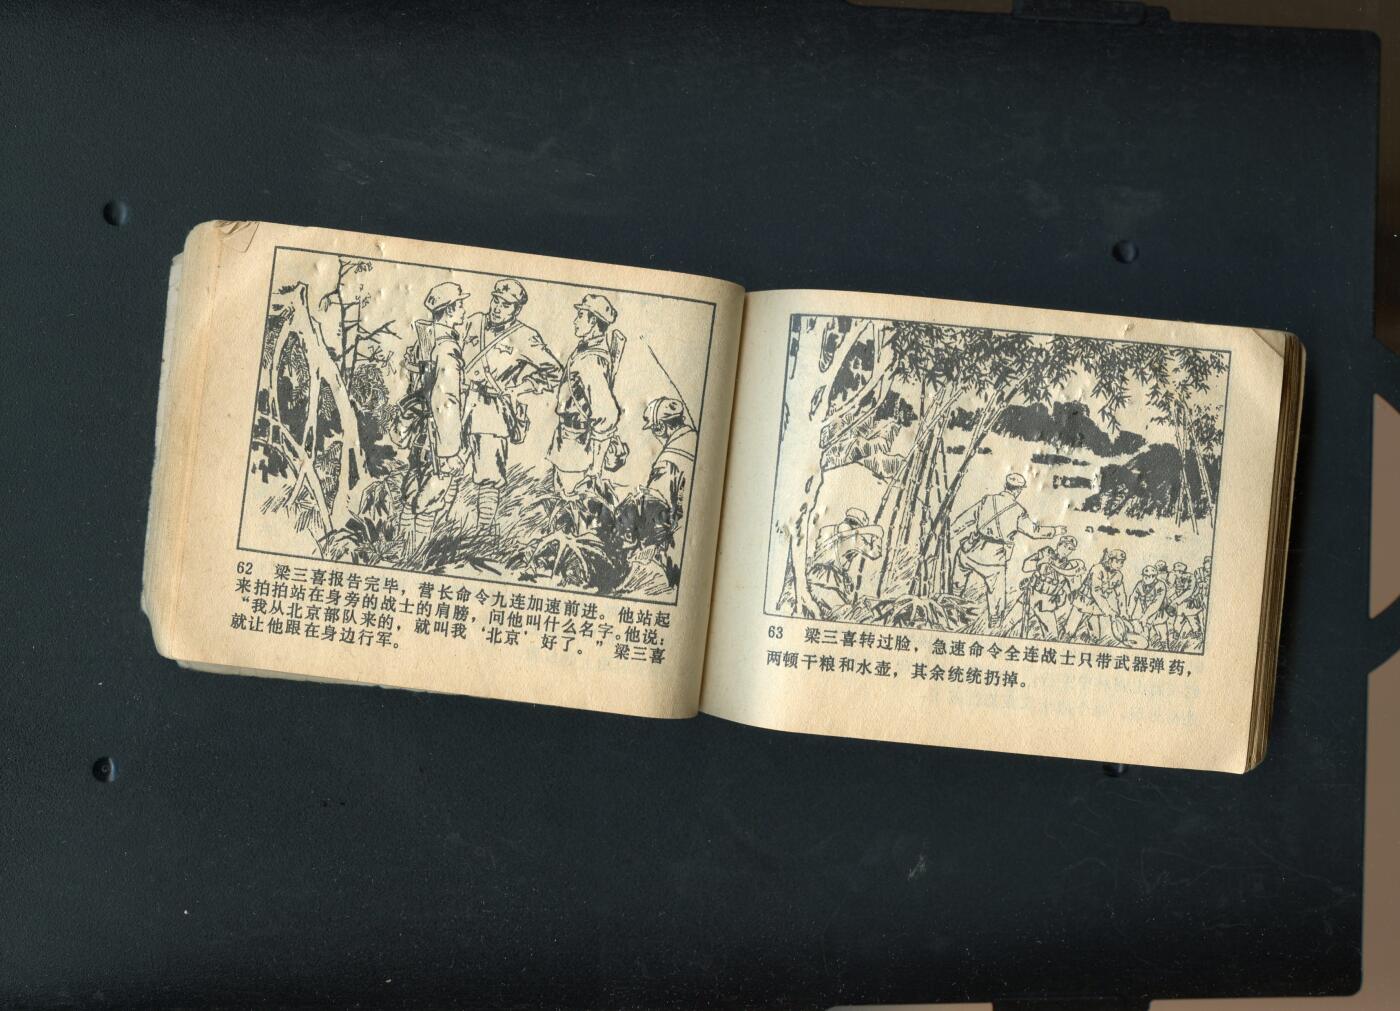 62　梁三喜报告完毕，营长命令九连加速前进。他站起
来拍拍站在身旁的战士的肩膀，问他叫什么名字。他说：
“我从北京部队来的，就叫我‘北京’好了。”梁三喜
就让他跟在身边行军。
63　梁三喜转过脸，急速命令全连战士只带武器弹药，
两顿干粮和水壶，其余统统扔掉。